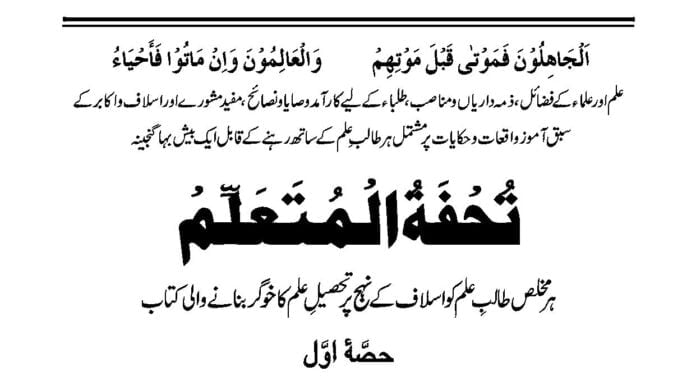 اَلْجَاهِلُوْنَ فَمَوْتٰى قَبْلَ مَوْتِهِمْ وَالْعَالِمُوْنَ وَاِنْ مَاتُوْا فَأَحْيَاءُ
علم اور علماء کے فضائل، ذمہ داریاں و مناصب، طلباء کے لیے کارآمد وصایا و نصائح، مفید مشورے اور اسلاف و اکابر کے
سبق آموز واقعات و حکایات پر مشتمل ہر طالبِ علم کے ساتھ رہنے کے قابل ایک بیش بہا گنجینہ
تُحْفَةُ الْمُتَعَلِّمُ
ہر مخلص طالبِ علم کو اسلاف کے نہج پر تحصیلِ علم کا خوگر بنانے والی کتاب
حصّۂ اوّل